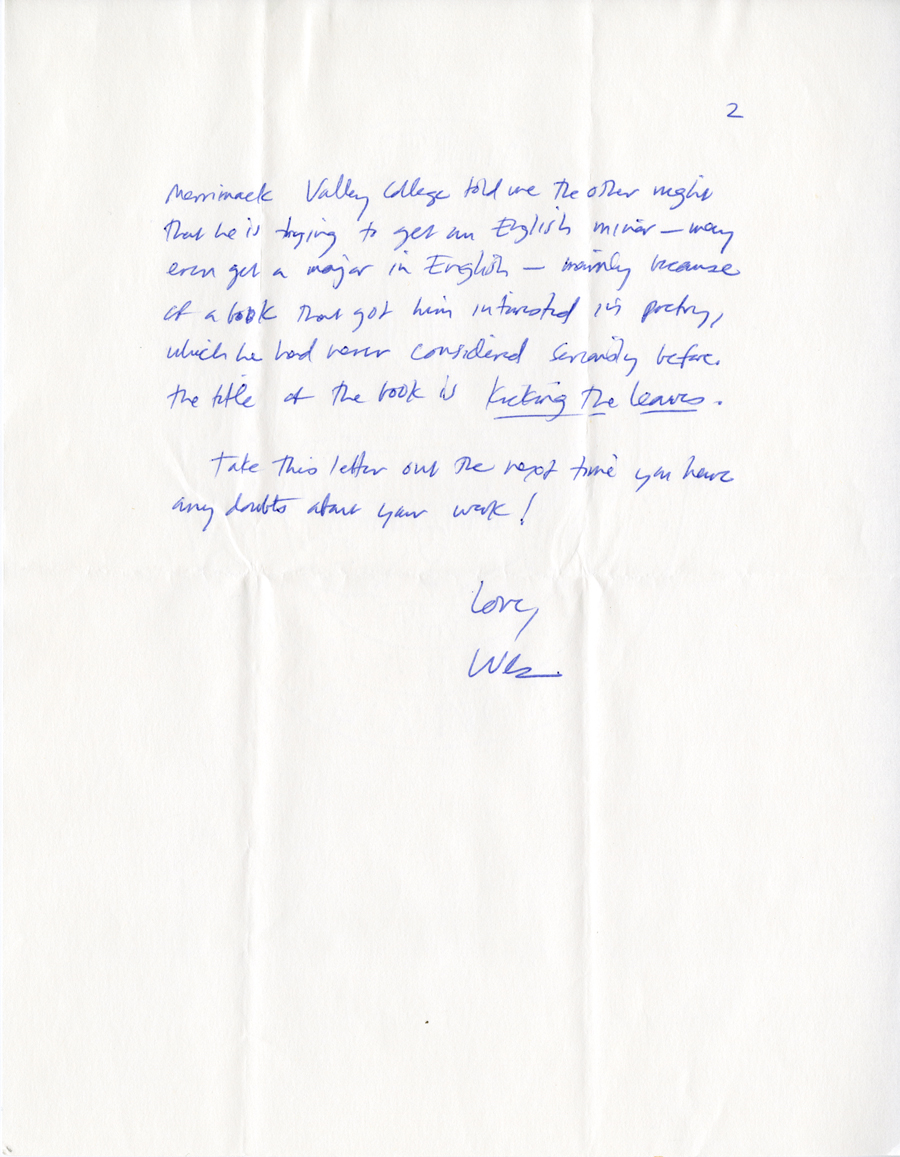 2
Merrimack Valley College told me the other night
that he is trying to get an English minor — may
even get a major in English — mainly because
of a book that got him interested in poetry,
which he had never considered seriously before.
The title of the book is Kicking the Leaves.
Take this letter out the next time you have
any doubts about your work!
Love,
Wes